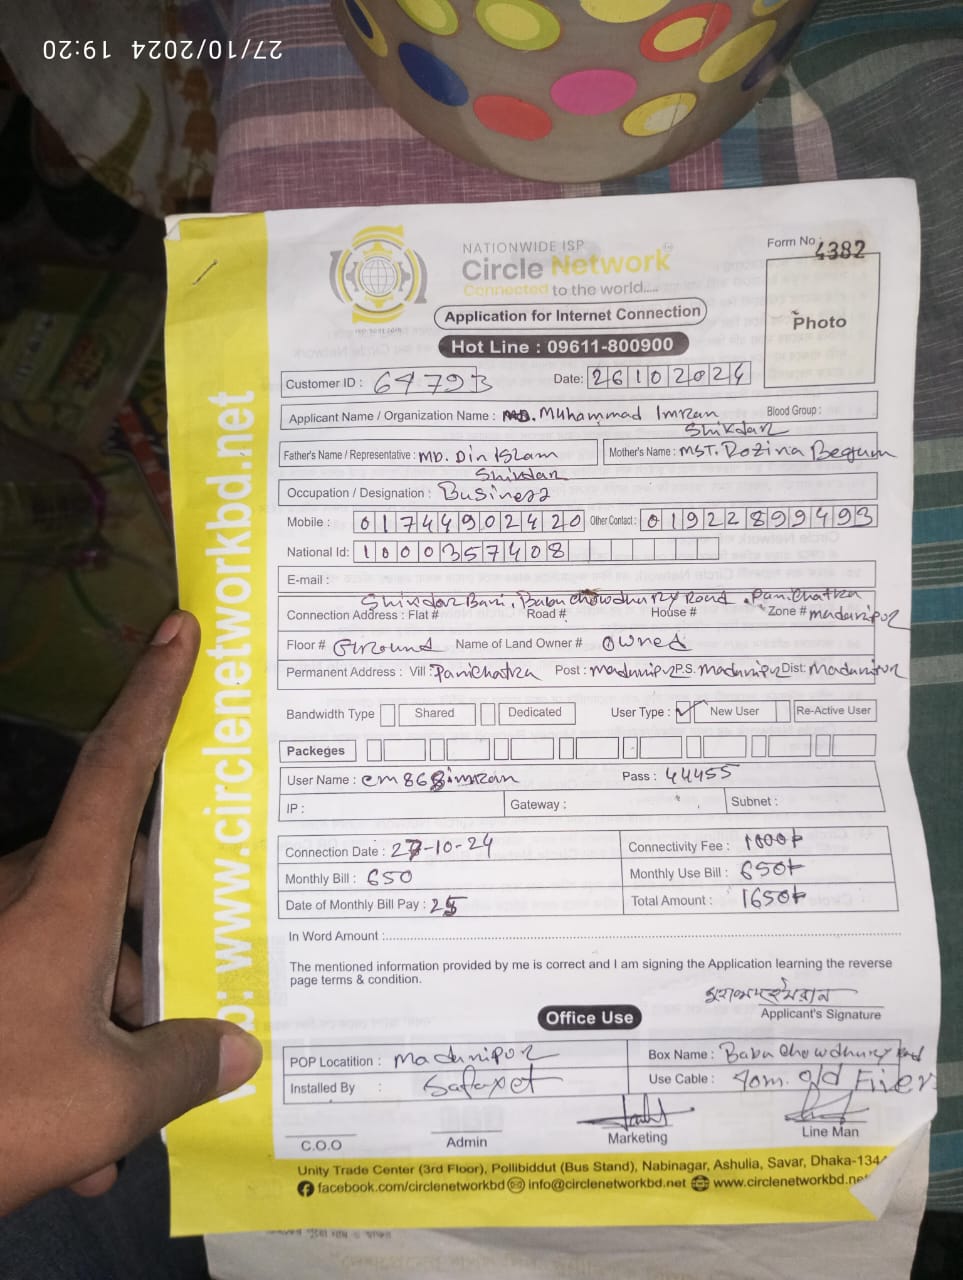 27/10/2024 19:20
NATIONWIDE ISP
Circle Network
Connected to the world.....
Form No: 4382
Application for Internet Connection
Photo
Hot Line : 09611-800900
Customer ID : 64793 Date: 26102024
Applicant Name / Organization Name : MD. Muhammad Imran Shikdar Blood Group :
Father's Name / Representative : MD. Din Islam Shikdar Mother's Name : MST. Rozina Begum
Occupation / Designation : Business
Mobile : 01744902420 Other Contact : 01922899493
National Id: 1000357408
E-mail :
Shikdar Bari, Babu chowdhury Road, Panichatra
Connection Address : Flat # Road # House # Zone # madaripur
Floor # Ground Name of Land Owner # owned
Permanent Address : Vill : Panichatra Post : madaripur P.S. madaripur Dist: Madaripur
Bandwidth Type Shared Dedicated User Type : ✓ New User Re-Active User
Packeges
User Name : cm868imran Pass : 44455
IP : Gateway : Subnet :
Connection Date : 27-10-24 Connectivity Fee : 1000৳
Monthly Bill : 650 Monthly Use Bill : 650৳
Date of Monthly Bill Pay : 25 Total Amount : 1650৳
In Word Amount :
The mentioned information provided by me is correct and I am signing the Application learning the reverse
page terms & condition.
মুহাম্মদ ইমরান
Applicant's Signature
Office Use
POP Locatition : Madaripur Box Name : Babu Chowdhury Road
Installed By : Safayet Use Cable : 40m. old Fiber
C.O.O Admin Marketing Line Man
Unity Trade Center (3rd Floor), Pollibiddut (Bus Stand), Nabinagar, Ashulia, Savar, Dhaka-134
facebook.com/circlenetworkbd info@circlenetworkbd.net www.circlenetworkbd.net
www.circlenetworkbd.net